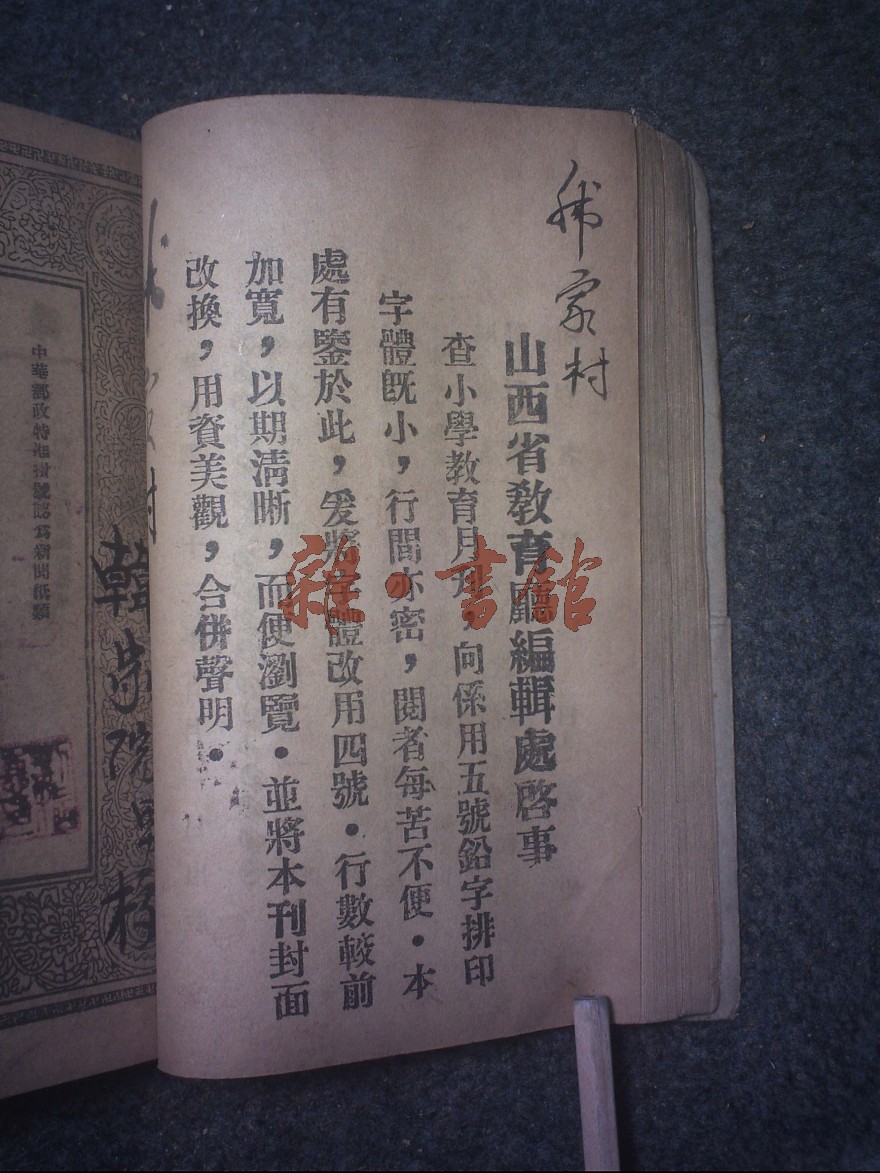 家村
山西省教育廳編輯處啓事
查小學教育月刊，向係用五號鉛字排印
字體既小，行間亦密，閱者每苦不便．本
處有鑒於此，爰將字體改用四號．行數較前
加寬，以期清晰，而便瀏覽．並將本刊封面
改換，用資美觀，合併聲明．
雜·書館
中華郵政特准掛號認爲新聞紙類
韓